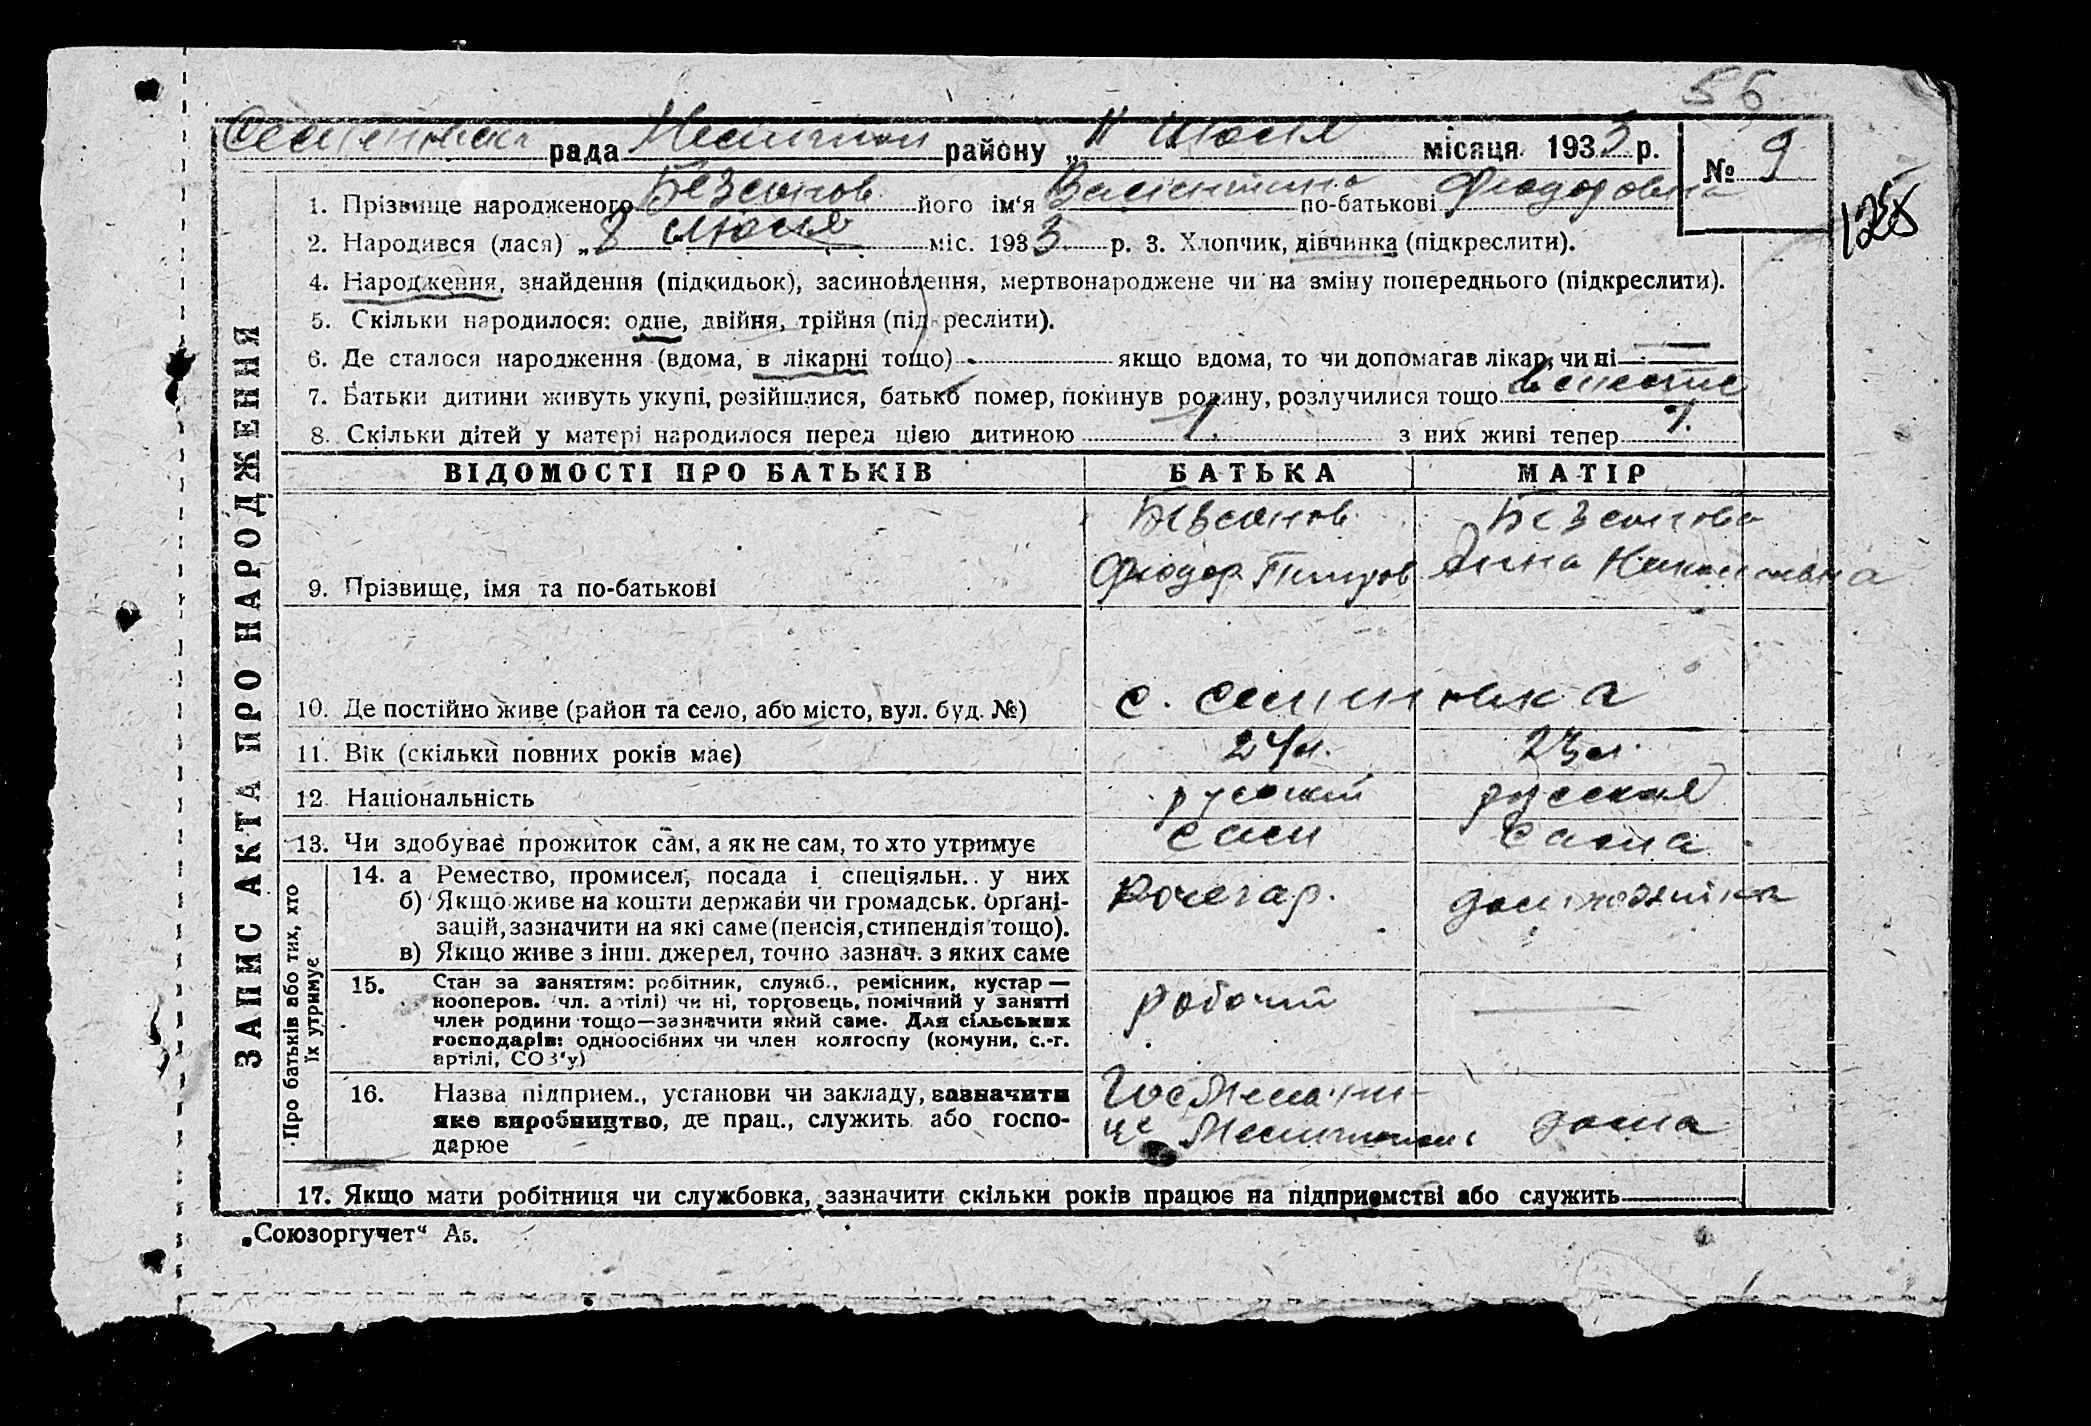 56
рада району „11 Июля місяця 1933 р. № 9
1. Прізвище народженого Безсонов його ім'я Валентина по-батькові Фиодоровна
125
2. Народився (лася) „8 июля міс. 1933 р. 3. Хлопчик, дівчинка (підкреслити).
4. Народження, знайдення (підкидьок), засиновлення, мертвонароджене чи на зміну попереднього (підкреслити).
5. Скільки народилося: одне, двійня, трійня (підкреслити).
6. Де сталося народження (вдома, в лікарні тощо) - якщо вдома, то чи допомагав лікар, чи ні —
7. Батьки дитини живуть укупі, розійшлися, батько помер, покинув родину, розлучилися тощо вместе
8. Скільки дітей у матері народилося перед цією дитиною 1. з них живі тепер 1.
ЗАПИС АКТА ПРО НАРОДЖЕННЯ
ВІДОМОСТІ ПРО БАТЬКІВ БАТЬКА МАТІР
Безсонов Безсонова
Фиодор Петров Анна
9. Прізвище, імя та по-батькові
10. Де постійно живе (район та село, або місто, вул. буд. №) с. Семеновка
11. Вік (скільки повних років має) 24 л. 23 л.
12 Національність русский русская
13. Чи здобуває прожиток сам, а як не сам, то хто утримує сам сама
Про батьків або тих, хто
їх утримує
14. а Ремество, промисел, посада і спеціяльн. у них Кочегар. домохозяйка
б) Якщо живе на кошти держави чи громадськ. органі-
зацій, зазначити на які саме (пенсія, стипендія тощо).
в) Якщо живе з інш. джерел, точно зазнач. з яких саме
15. Стан за заняттям: робітник, служб., ремісник, кустар —
кооперов. чл. артілі) чи ні, торговець, помічний у занятті
член родини тощо—зазначити який саме. Для сільських
господарів: одноосібних чи член колгоспу (комуни, с.-г.
артілі, СОЗ'у) рабочий —
16. Назва підприєм., установи чи закладу, зазначити
яке виробництво, де прац., служить або госпо-
дарює дома
17. Якщо мати робітниця чи службовка, зазначити скільки років працює на підприємстві або служить
„Союзоргучет“ А5.